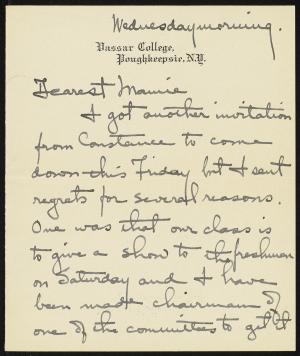 Wednesday morning.
Vassar College,
Poughkeepsie, N.Y.
Dearest Mamie
I got another invitation
from Constance to come
down this Friday but I sent
regrets for several reasons.
One was that our class is
to give a show to the freshman
on Saturday and I have
been made chairman of
one of the committees to get it